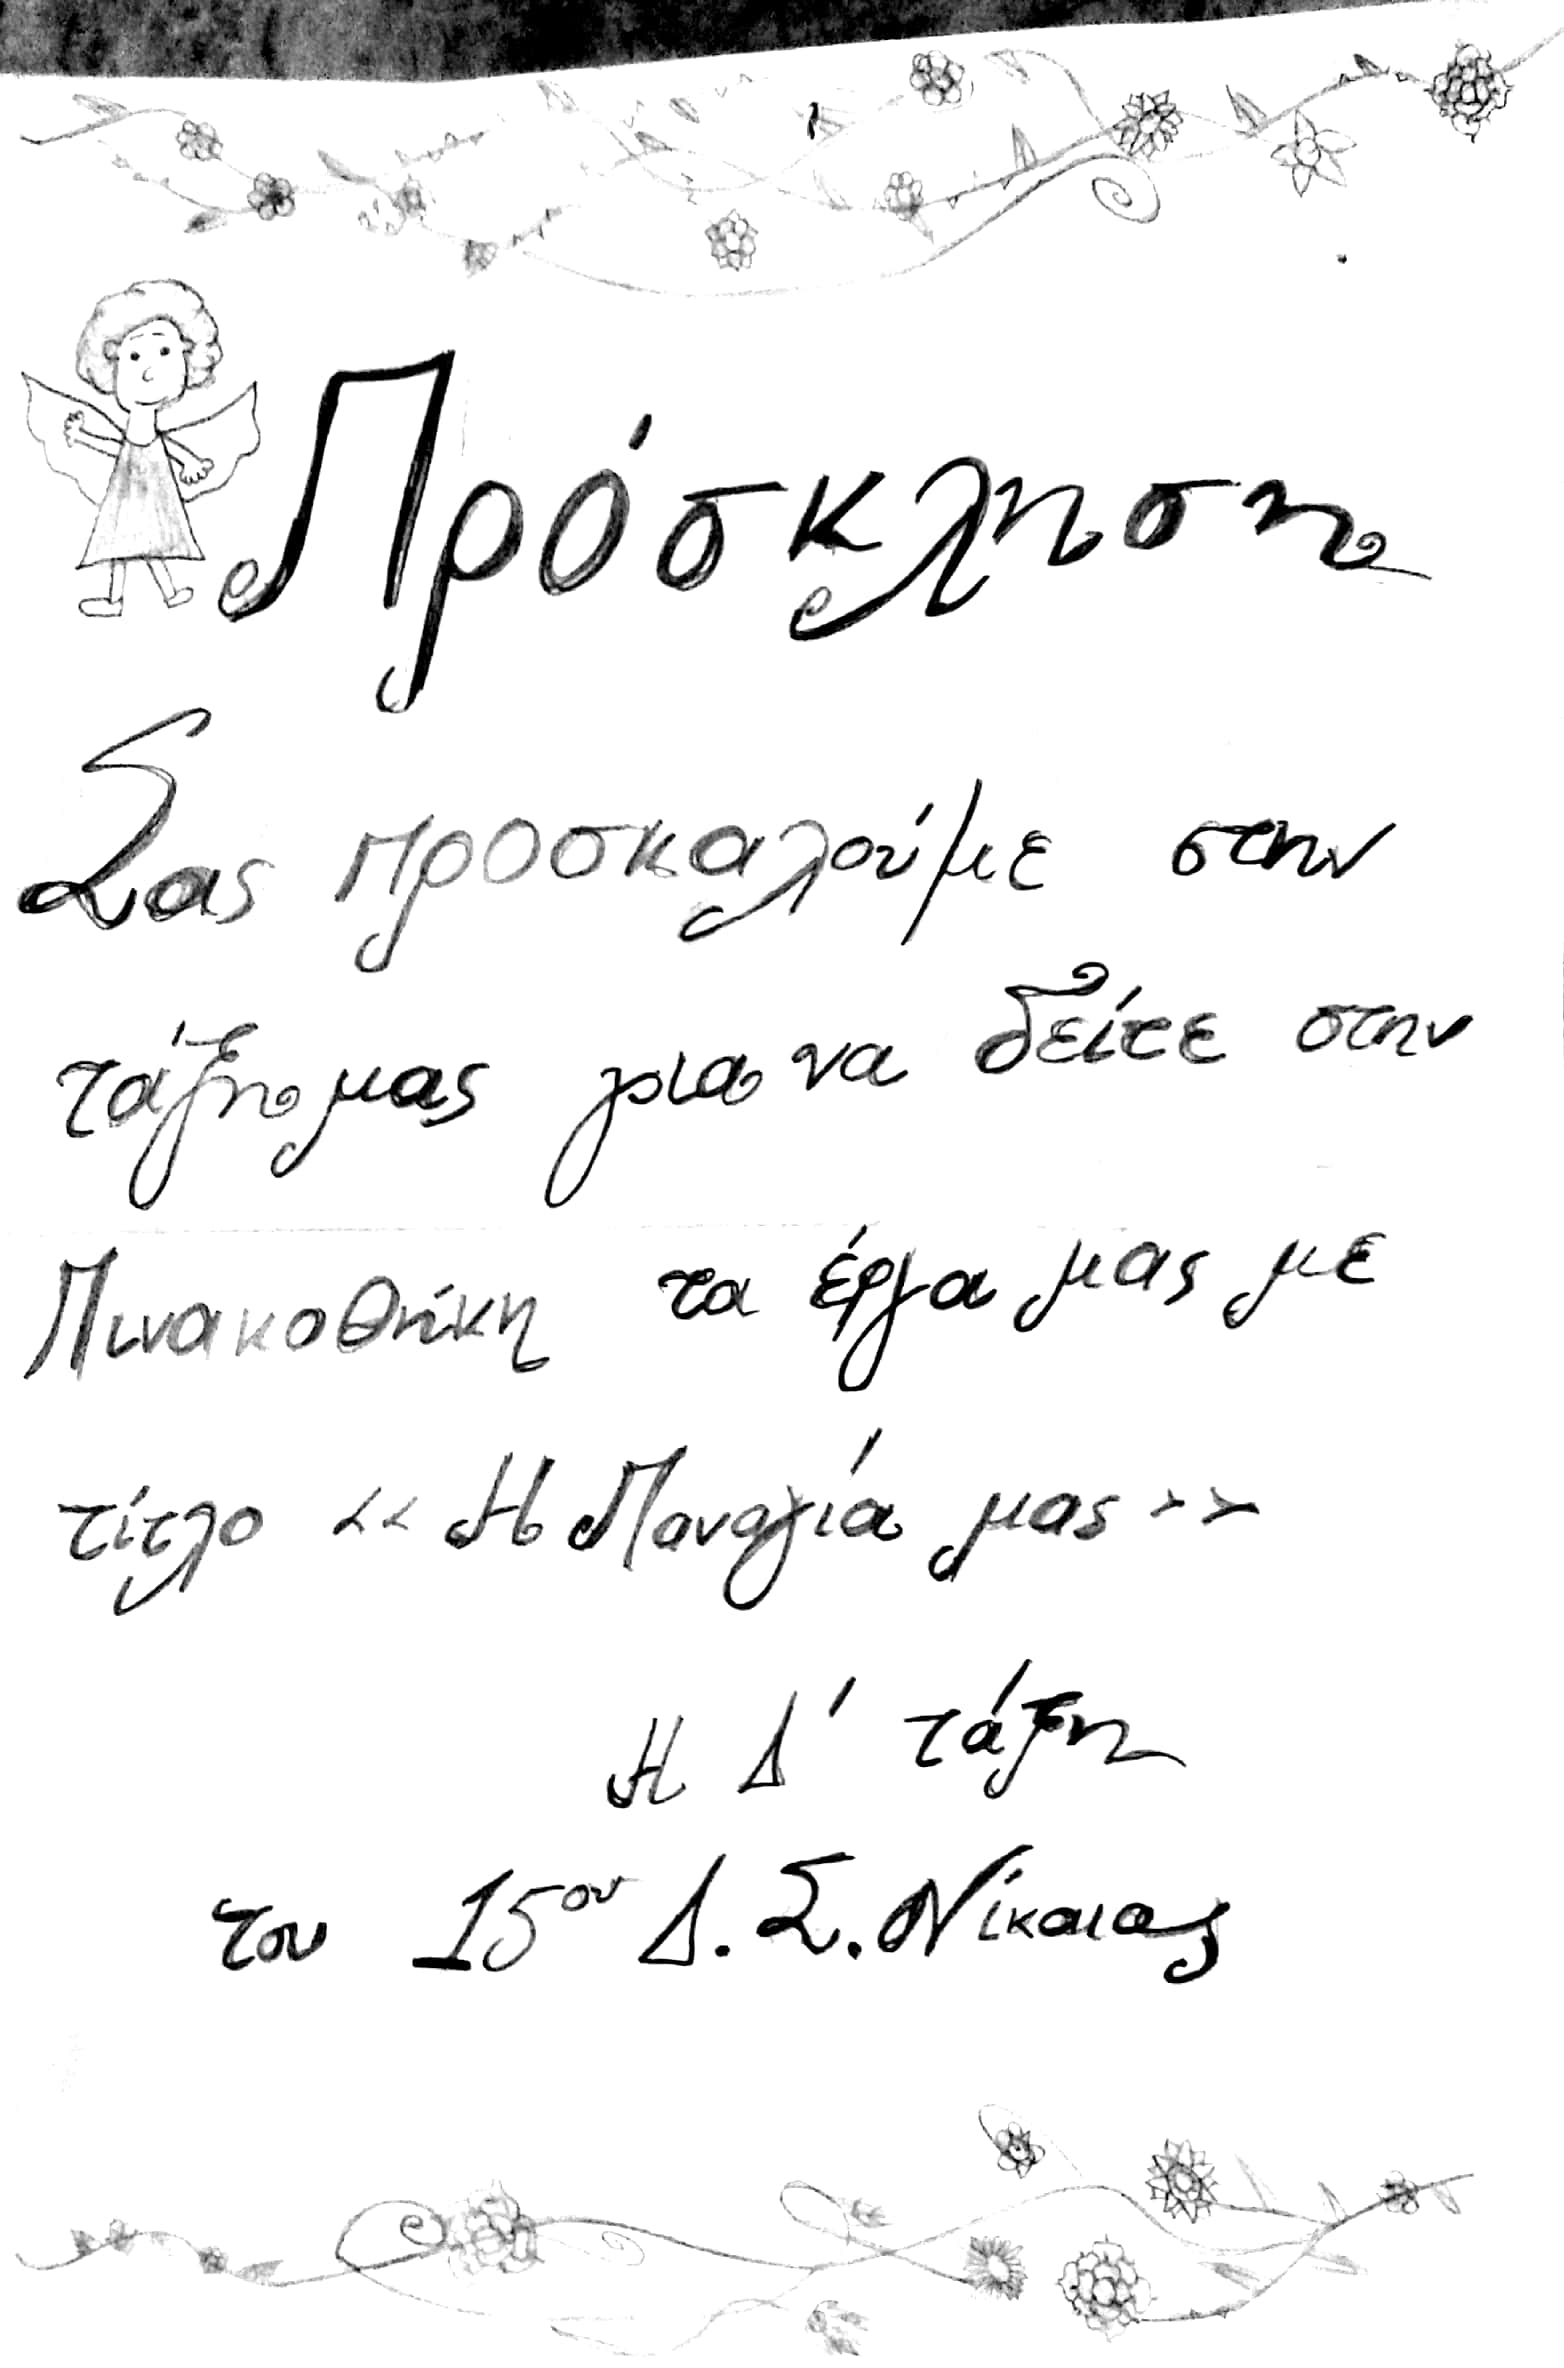 Πρόσκληση
Σας προσκαλούμε στην
τάξη μας για να δείτε στην
Πινακοθήκη τα έργα μας με
τίτλο «Η Παναγιά μας»
Η Δ' τάξη
του 15ου Δ.Σ. Νίκαιας